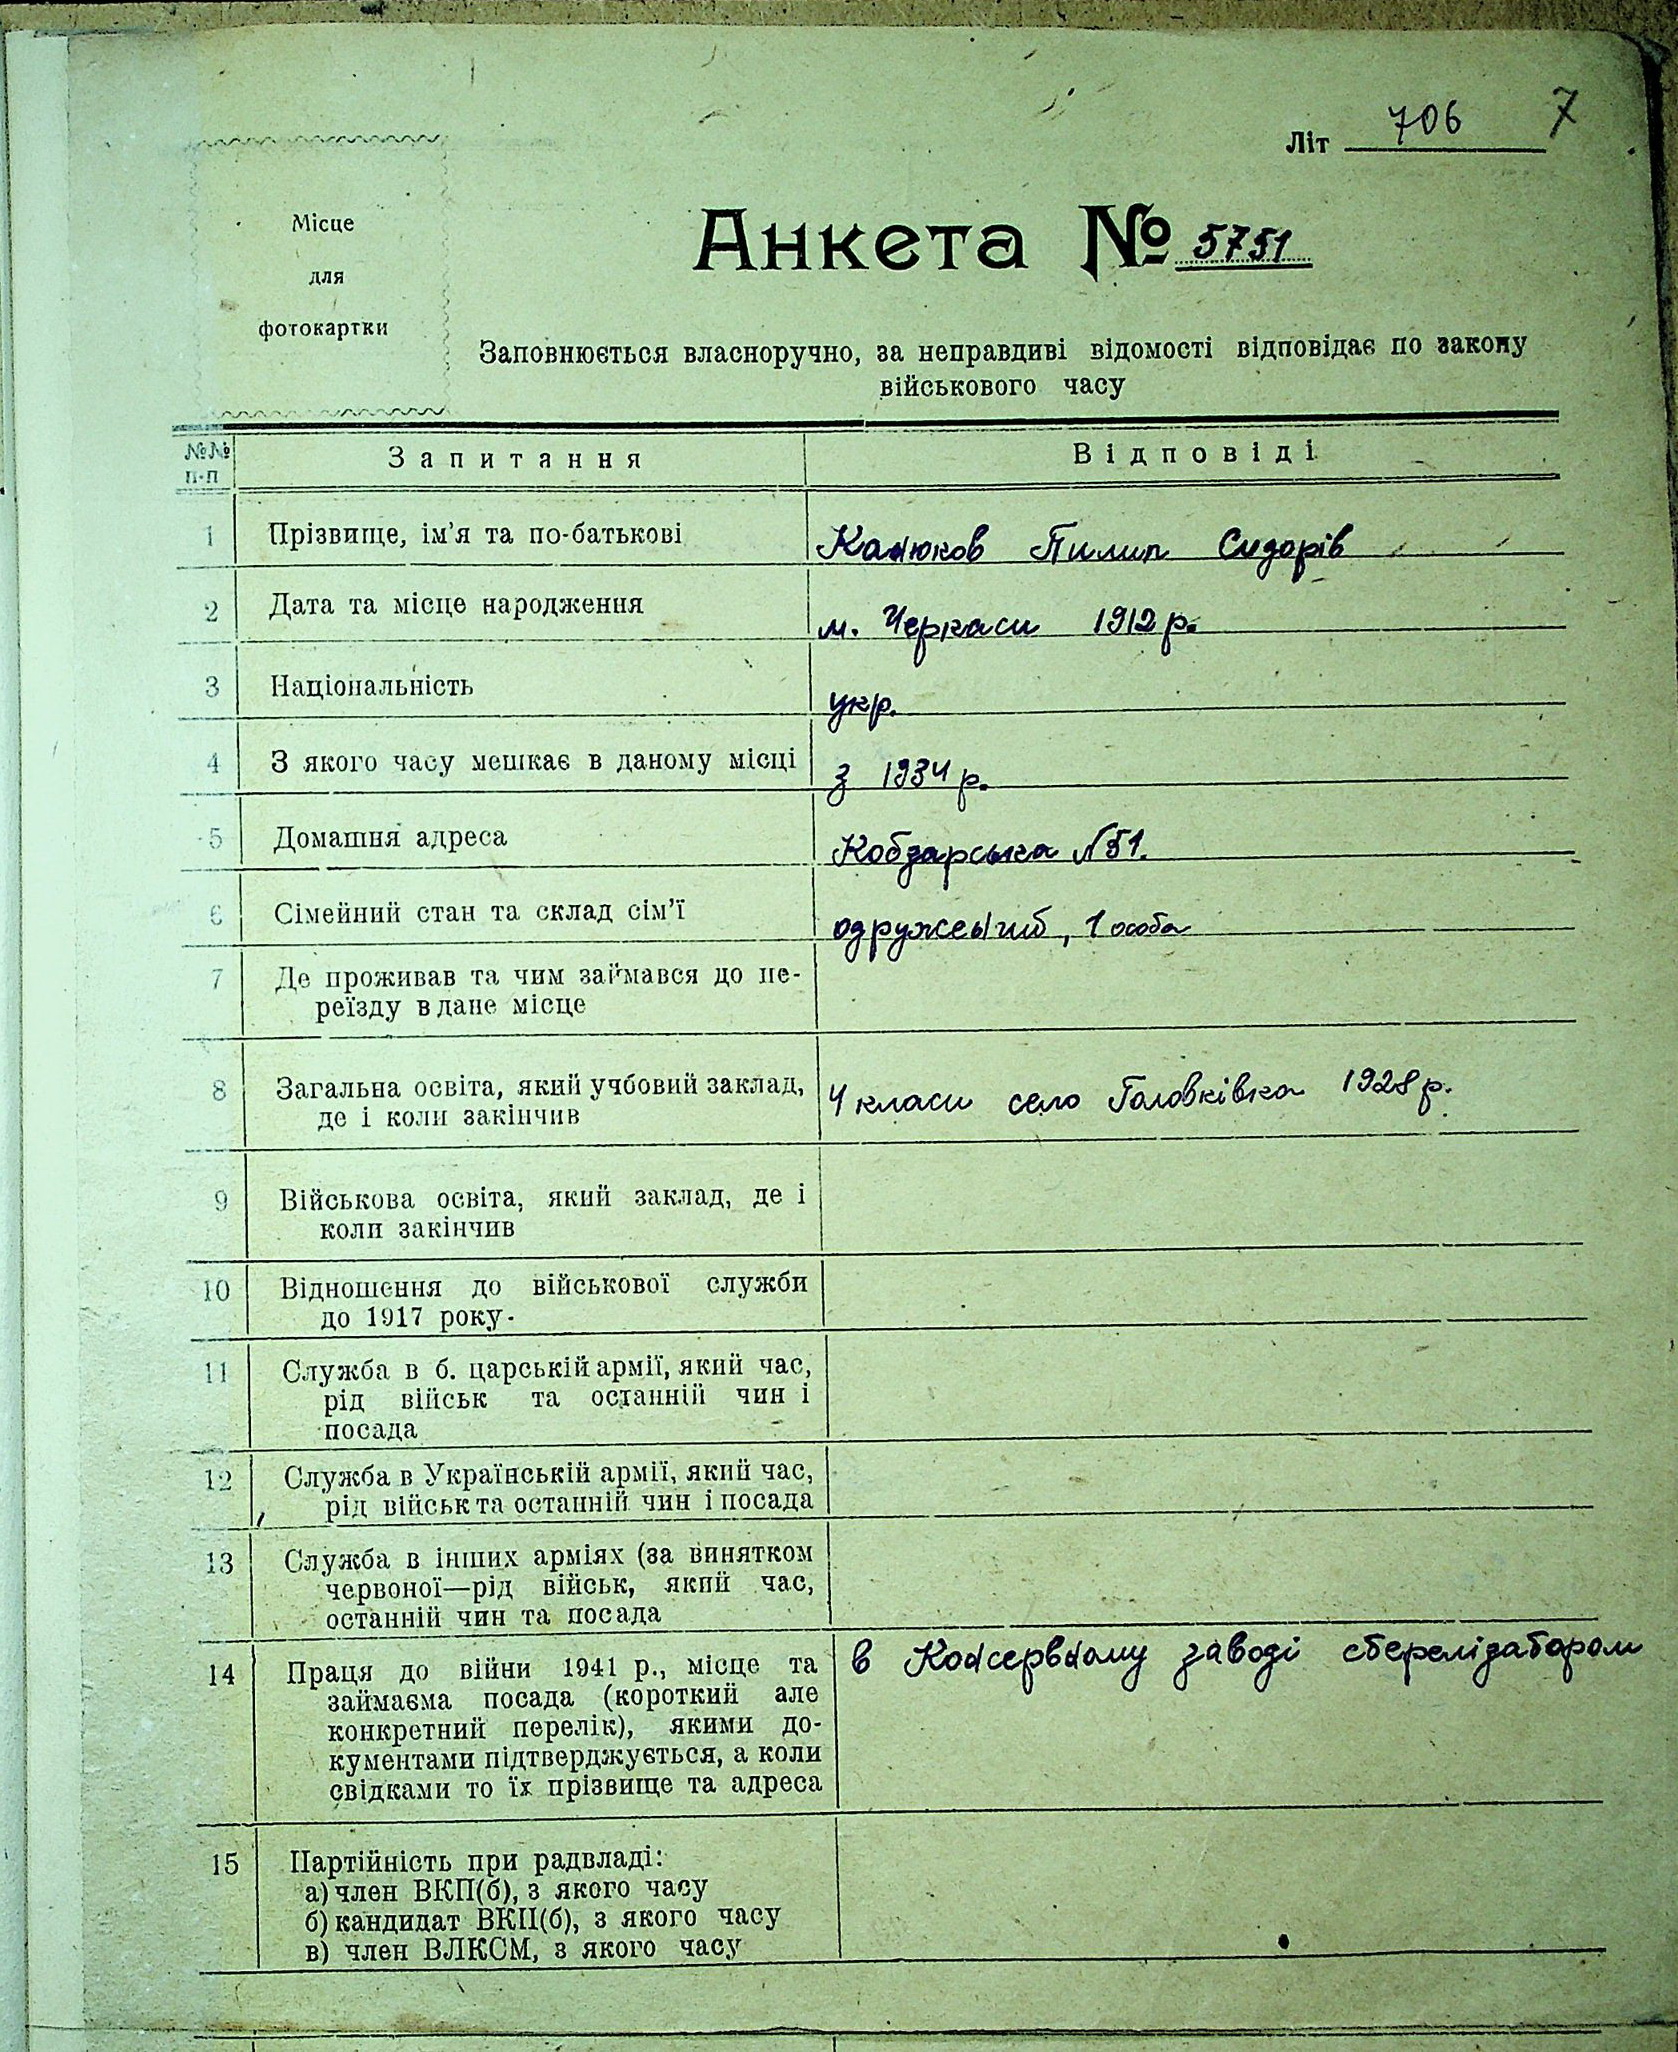 Літ 706 7
Місце
для
фотокартки
Анкета № 5751
Заповнюється власноручно, за неправдиві відомості відповідає по закону
військового часу
№№ п-п Запитання Відповіді
1 Прізвище, ім'я та по-батькові Канюков Пилип Сидорів
2 Дата та місце народження м. Черкаси 1912 р.
3 Національність укр.
4 З якого часу мешкає в даному місці з 1934 р.
5 Домашня адреса Кобзарська №51.
6 Сімейний стан та склад сім'ї одружений, 1 особа
7 Де проживав та чим займався до пе-
реїзду в дане місце
8 Загальна освіта, який учбовий заклад, 4 класи село Головківка 1928 р.
де і коли закінчив
9 Військова освіта, який заклад, де і
коли закінчив
10 Відношення до військової служби
до 1917 року.
11 Служба в б. царській армії, який час,
рід військ та останній чин і
посада
12 Служба в Українській армії, який час,
рід військ та останній чин і посада
13 Служба в інших арміях (за винятком
червоної—рід військ, який час,
останній чин та посада
14 Праця до війни 1941 р., місце та в Консервному заводі стерелізатором
займаєма посада (короткий але
конкретний перелік), якими до-
кументами підтверджується, а коли
свідками то їх прізвище та адреса
15 Партійність при радвладі:
а) член ВКП(б), з якого часу
б) кандидат ВКП(б), з якого часу
в) член ВЛКСМ, з якого часу